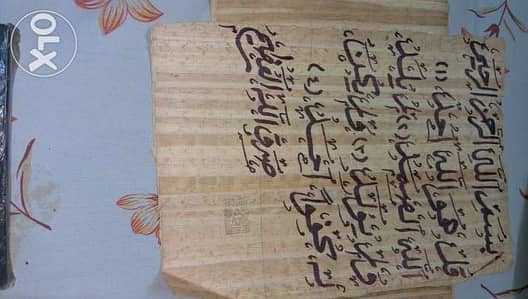 OLX
بِسْمِ اللَّهِ الرَّحْمَنِ الرَّحِيمِ
قُلْ هُوَ اللَّهُ أَحَدٌ (١)
اللَّهُ الصَّمَدُ (٢) لَمْ يَلِدْ
وَلَمْ يُولَدْ (٣) وَلَمْ يَكُنْ
لَهُ كُفُوًا أَحَدٌ (٤)
صَدَقَ اللَّهُ الْعَظِيمُ